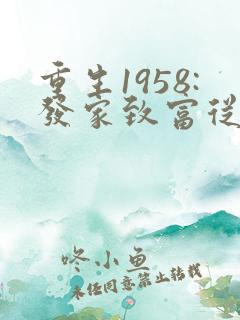 重生1958:
發家致富從
咚小鱼
未任同意禁止转载